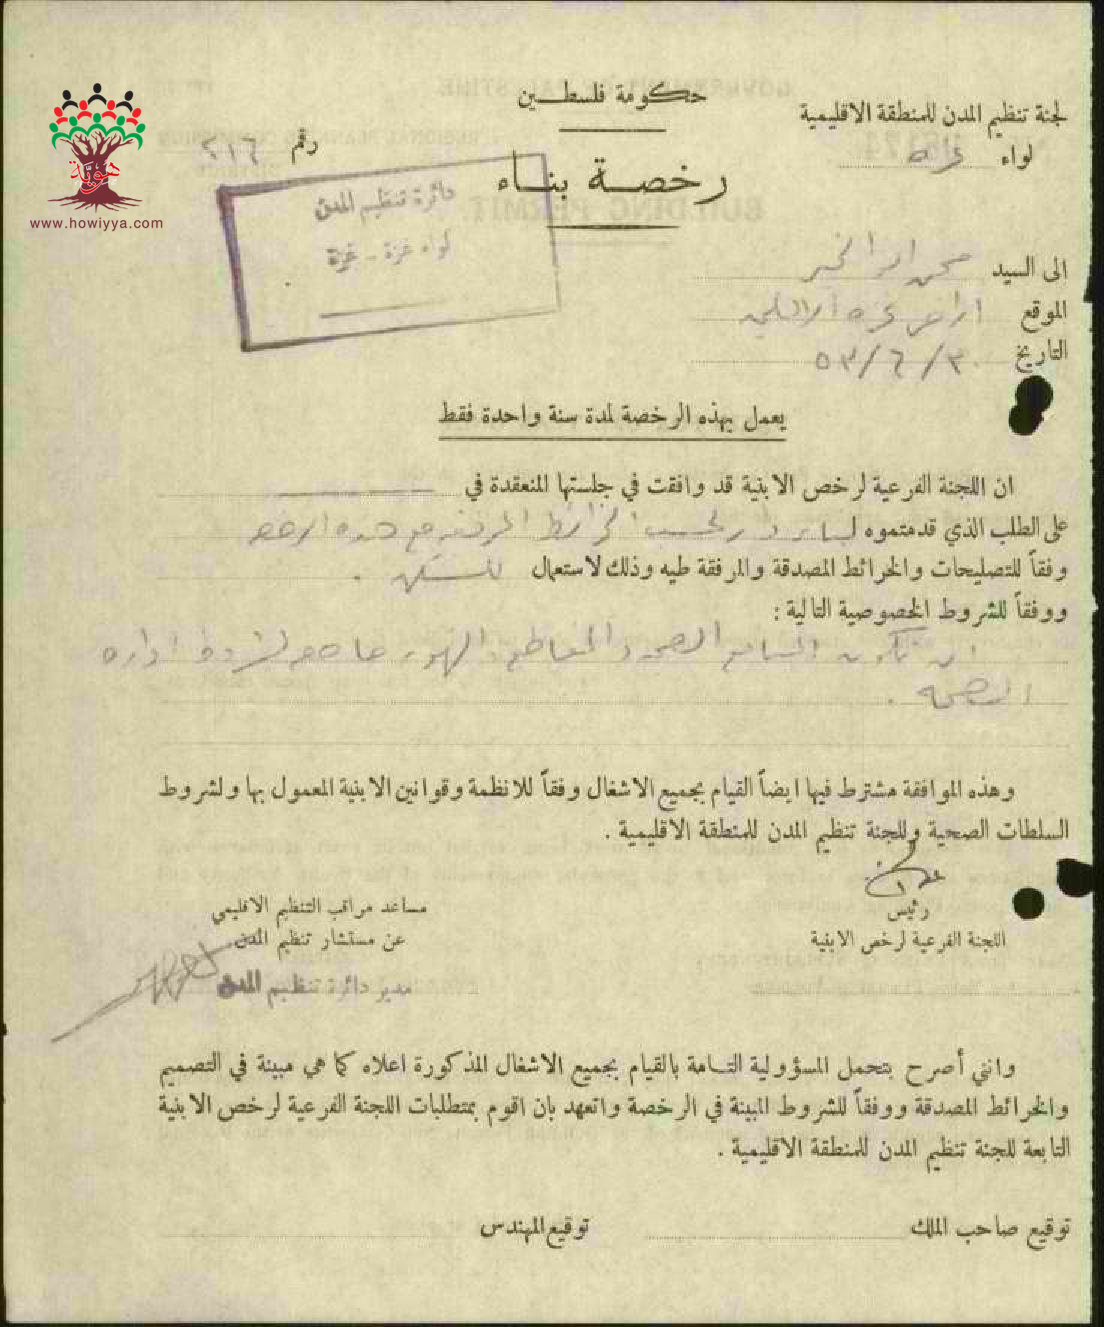 حكومة فلسطين
لجنة تنظيم المدن للمنطقة الاقليمية
لواء غزه
رقم ٢١٦
رخصة بناء
دائرة تنظيم المدن
لواء غزة - غزة
هوية
www.howiyya.com
الى السيد
الموقع
التاريخ ٣ / ٦ / ٥٣
يعمل بهذه الرخصة لمدة سنة واحدة فقط
ان اللجنة الفرعية لرخص الابنية قد وافقت في جلستها المنعقدة في
على الطلب الذي قدمتموه لبناء دار حسب الخرائط المرفقه مع هذه الرخصه
وفقاً للتصليحات والخرائط المصدقة والمرفقة طيه وذلك لاستعمال للسكن .
ووفقاً للشروط الخصوصية التالية :
ان تكون المنافع الصحيه والمطابخ والتهويه خاضعه لشروط اداره
الصحه .
وهذه الموافقة مشترط فيها ايضاً القيام بجميع الاشغال وفقاً للانظمة وقوانين الابنية المعمول بها ولشروط
السلطات الصحية وللجنة تنظيم المدن للمنطقة الاقليمية .
رئيس
اللجنة الفرعية لرخص الابنية
مساعد مراقب التنظيم الاقليمي
عن مستشار تنظيم المدن
مدير دائرة تنظيم المدن
وانني أصرح بتحمل المسؤولية التامة بالقيام بجميع الاشغال المذكورة اعلاه كما هي مبينة في التصميم
والخرائط المصدقة ووفقاً للشروط المبينة في الرخصة واتعهد بان اقوم بمتطلبات اللجنة الفرعية لرخص الابنية
التابعة للجنة تنظيم المدن للمنطقة الاقليمية .
توقيع صاحب الملك
توقيع المهندس